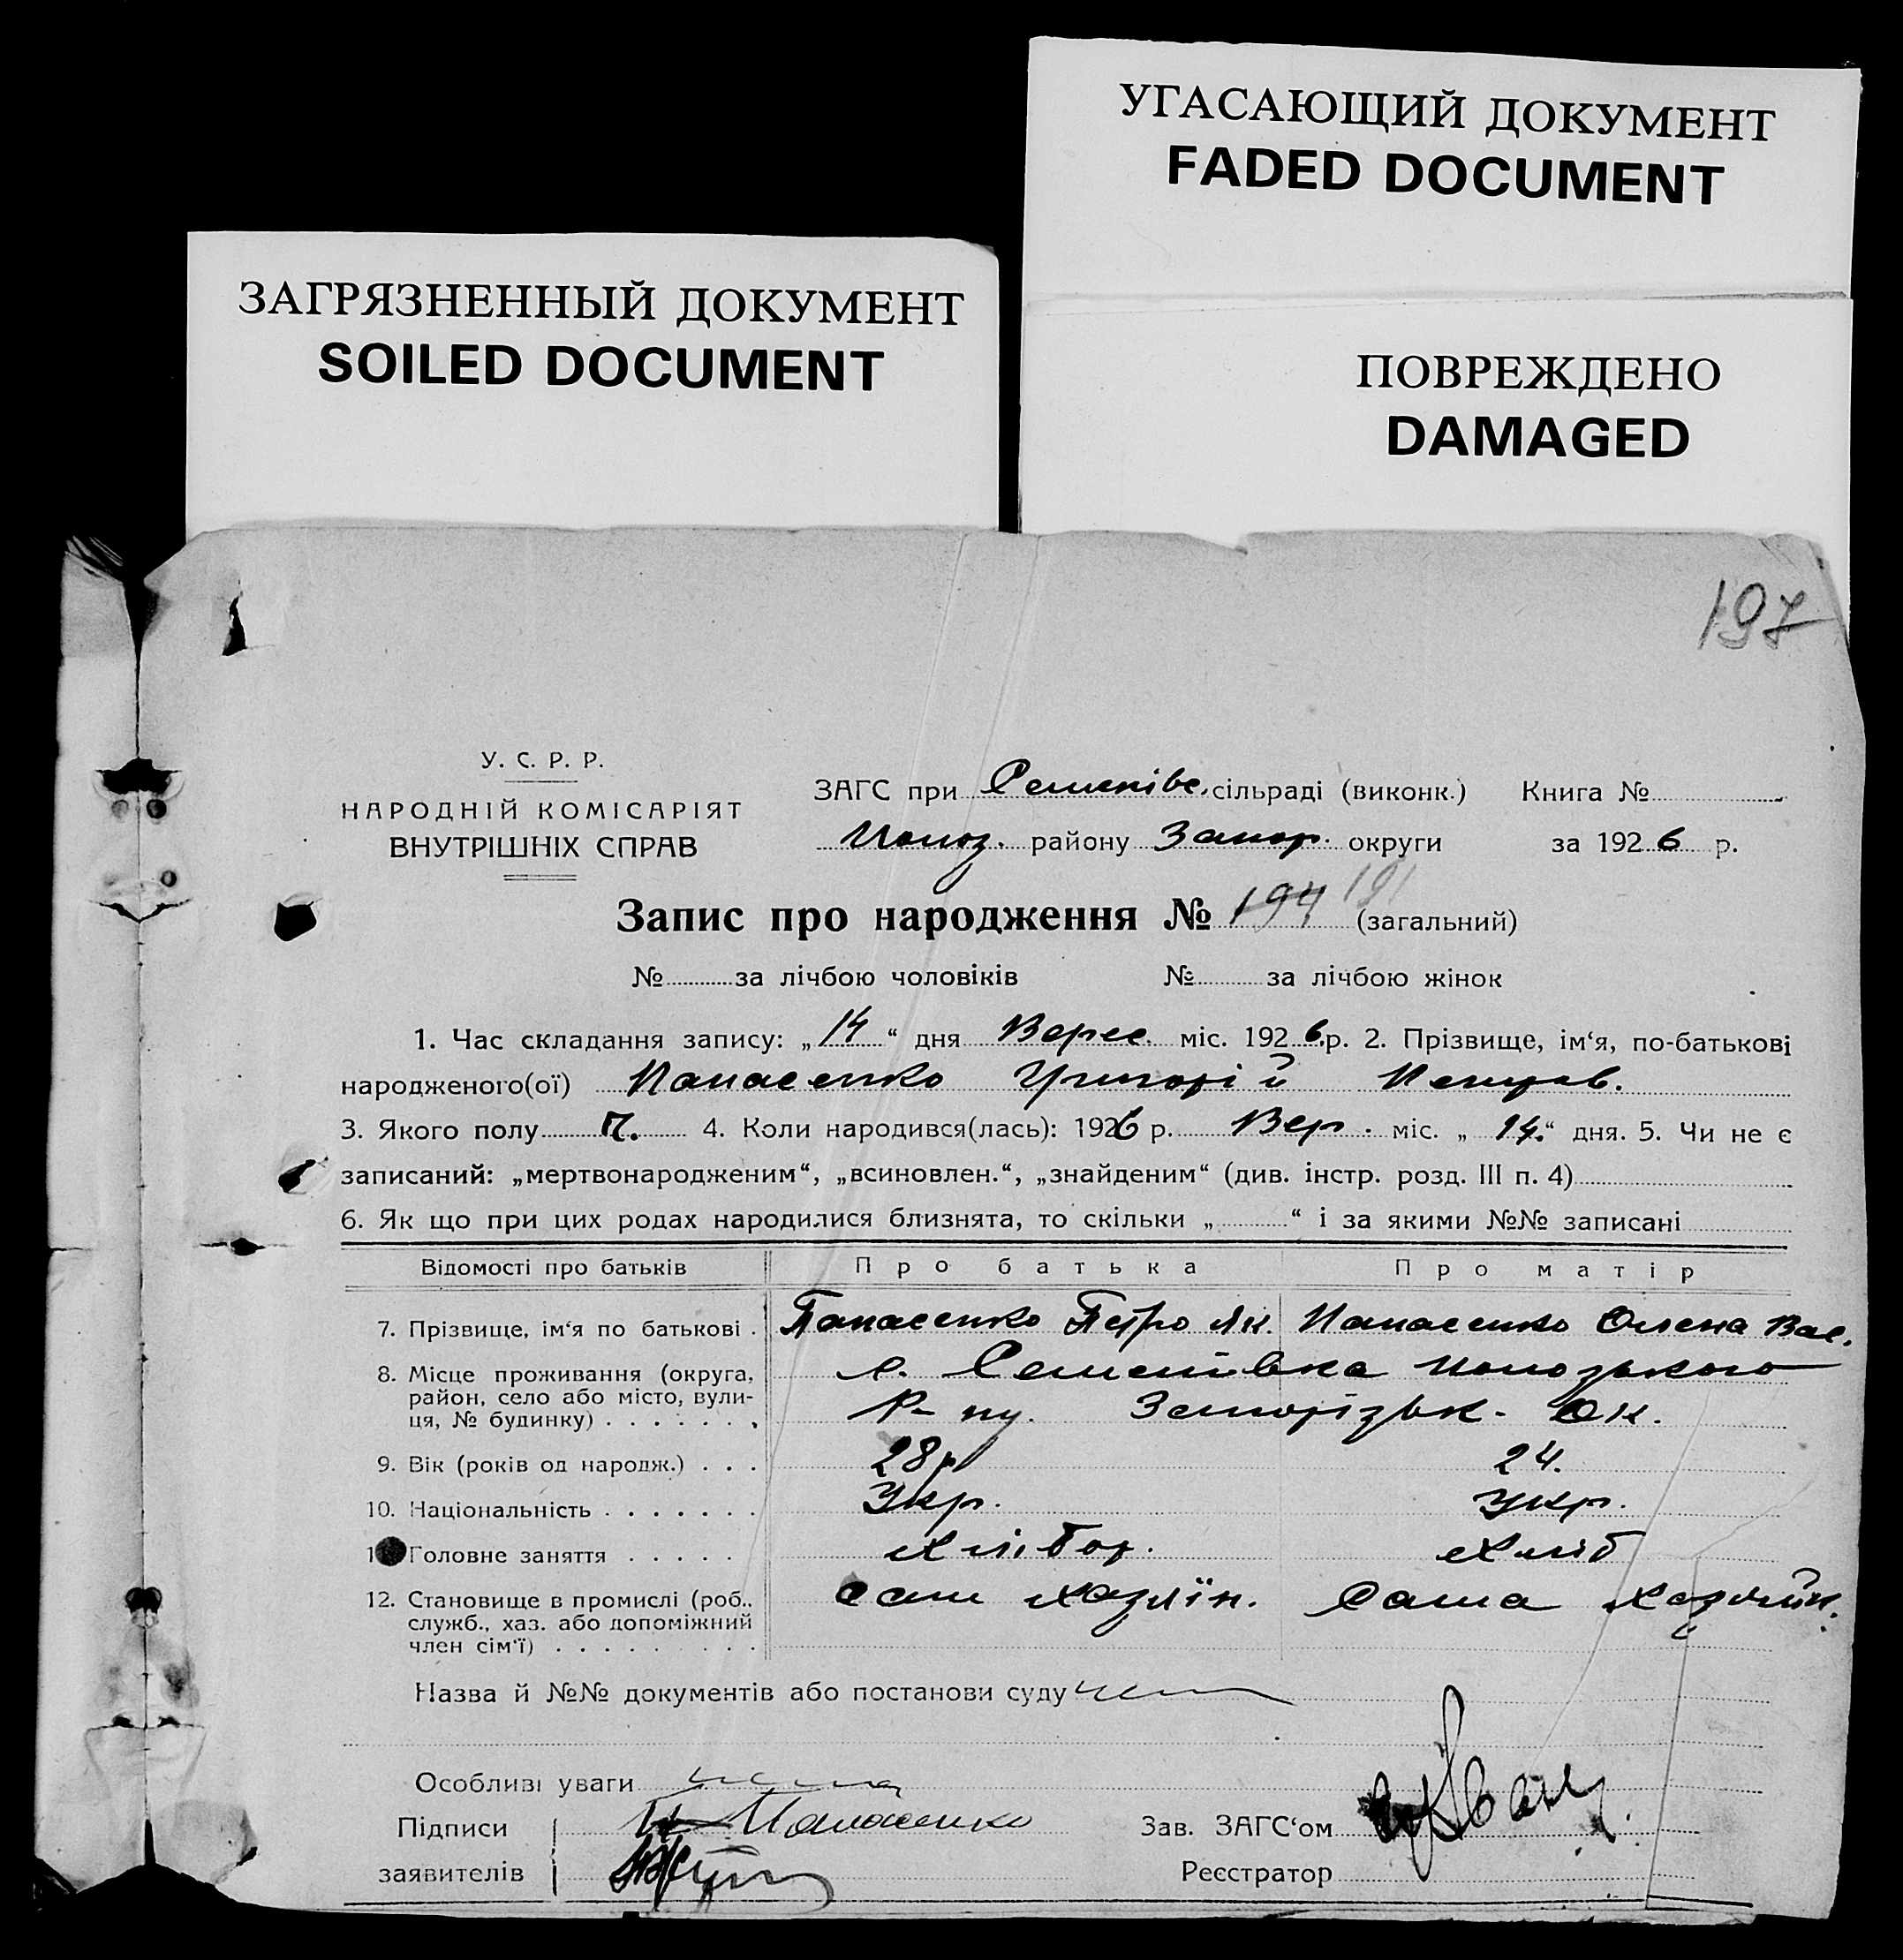 УГАСАЮЩИЙ ДОКУМЕНТ
FADED DOCUMENT
ЗАГРЯЗНЕННЫЙ ДОКУМЕНТ
SOILED DOCUMENT
ПОВРЕЖДЕНО
DAMAGED
197
У. С. Р. Р.
НАРОДНІЙ КОМІСАРІЯТ
ВНУТРІШНІХ СПРАВ
ЗАГС при Семенівс. сільраді (виконк.) Книга №
Полоз. району Запор. округи за 1926 р.
Запис про народження № 194 191 (загальний)
№ за лічбою чоловіків № за лічбою жінок
1. Час складання запису: „14“ дня Верес. міс. 1926 р. 2. Прізвище, ім‘я, по-батькові
народженого(ої) Панасенко Григорій Петров.
3. Якого полу ч. 4. Коли народився(лась): 1926 р. Вер. міс. „14.“ дня. 5. Чи не є
записаний: „мертвонародженим“, „всиновлен.“, „знайденим“ (див. інстр. розд. III п. 4)
6. Як що при цих родах народилися близнята, то скільки „ “ і за якими №№ записані
Відомості про батьків Про батька Про матір
7. Прізвище, ім‘я по батькові . Панасенко Петро Як. Панасенко Олена Вас.
8. Місце проживання (округа, с. Семенівка Пологського
район, село або місто, вули-
ця, № будинку) . . . . . . . Р-ну. Запорізьк. Ок.
9. Вік (років од народж.) . . . 28 р 24.
10. Національність . . . . . . . Укр. Укр.
Головне заняття . . . . . Хлібор. Хліб
12. Становище в промислі (роб., сам хазяїн. сама хазяйн.
служб., хаз. або допоміжний
член сім‘ї) . . . . . . . . .
Назва й №№ документів або постанови суду нема
Особливі уваги нема
Підписи Панасенко Зав. ЗАГС‘ом
заявителів Реєстратор